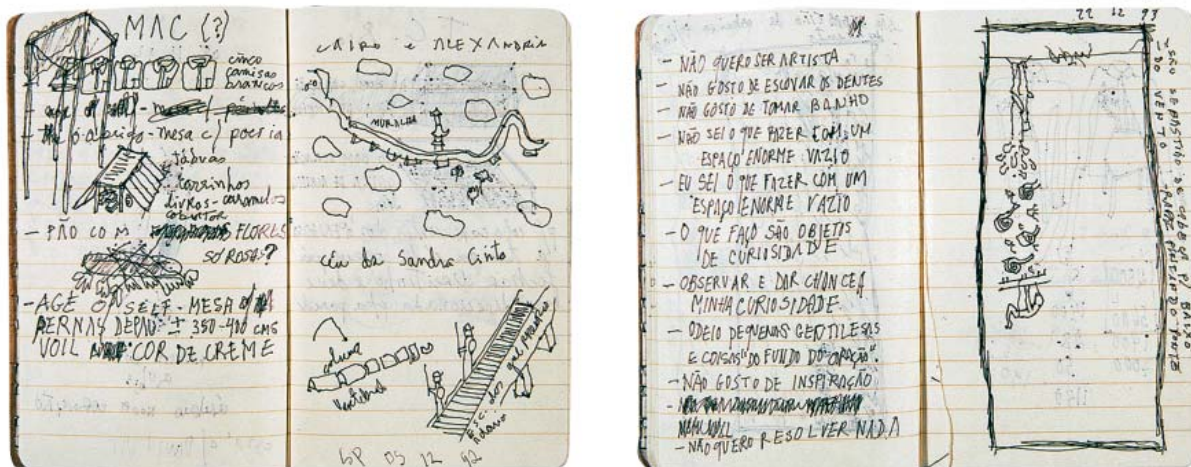 MAC (?)
cinco
camisas
brancas
abrigo - mesa c/ poesia
tábuas
carrinhos
livros - caramelos
cobertor
- PÃO COM FLORES
SÓ ROSAS?
- AGE O SELF - MESA
PERNAS DE PAU ± 350-400 CMS
VOIL COR DE CREME
CAIRO e ALEXANDRIA
MURALHA
CÉU da Sandra Cinto
coluna
vertebral
SP 05 12 92
- NÃO QUERO SER ARTISTA
- NÃO GOSTO DE ESCOVAR OS DENTES
- NÃO GOSTO DE TOMAR BANHO
- NÃO SEI O QUE FAZER COM UM
ESPAÇO ENORME VAZIO
- EU SEI O QUE FAZER COM UM
ESPAÇO ENORME VAZIO
- O QUE FAÇO SÃO OBJETOS
DE CURIOSIDADE
- OBSERVAR E DAR CHANCE À
MINHA CURIOSIDADE.
- ODEIO PEQUENAS GENTILESAS
E COISAS "DO FUNDO DO CORAÇÃO".
- NÃO GOSTO DE INSPIRAÇÃO
- NÃO QUERO RESOLVER NADA
22 12 93
SÃO SEBASTIÃO DE CABEÇA P/ BAIXO
- DO VENTO